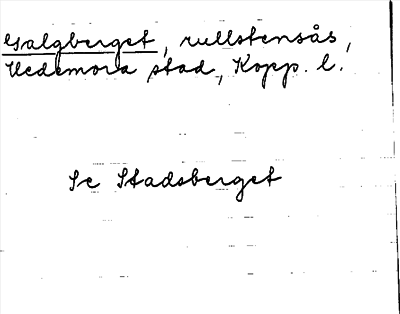 Galgberget, rullstensås,
Hedemora stad, Kopp. l.
Se Stadsberget